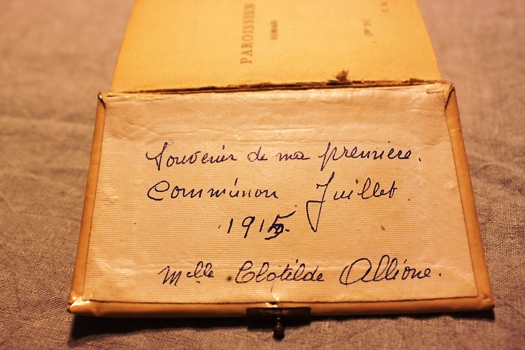 PAROISSIEN
ROMAIN
Souvenir de ma première.
Communion Juillet.
1915.
Melle Clotilde Allione.